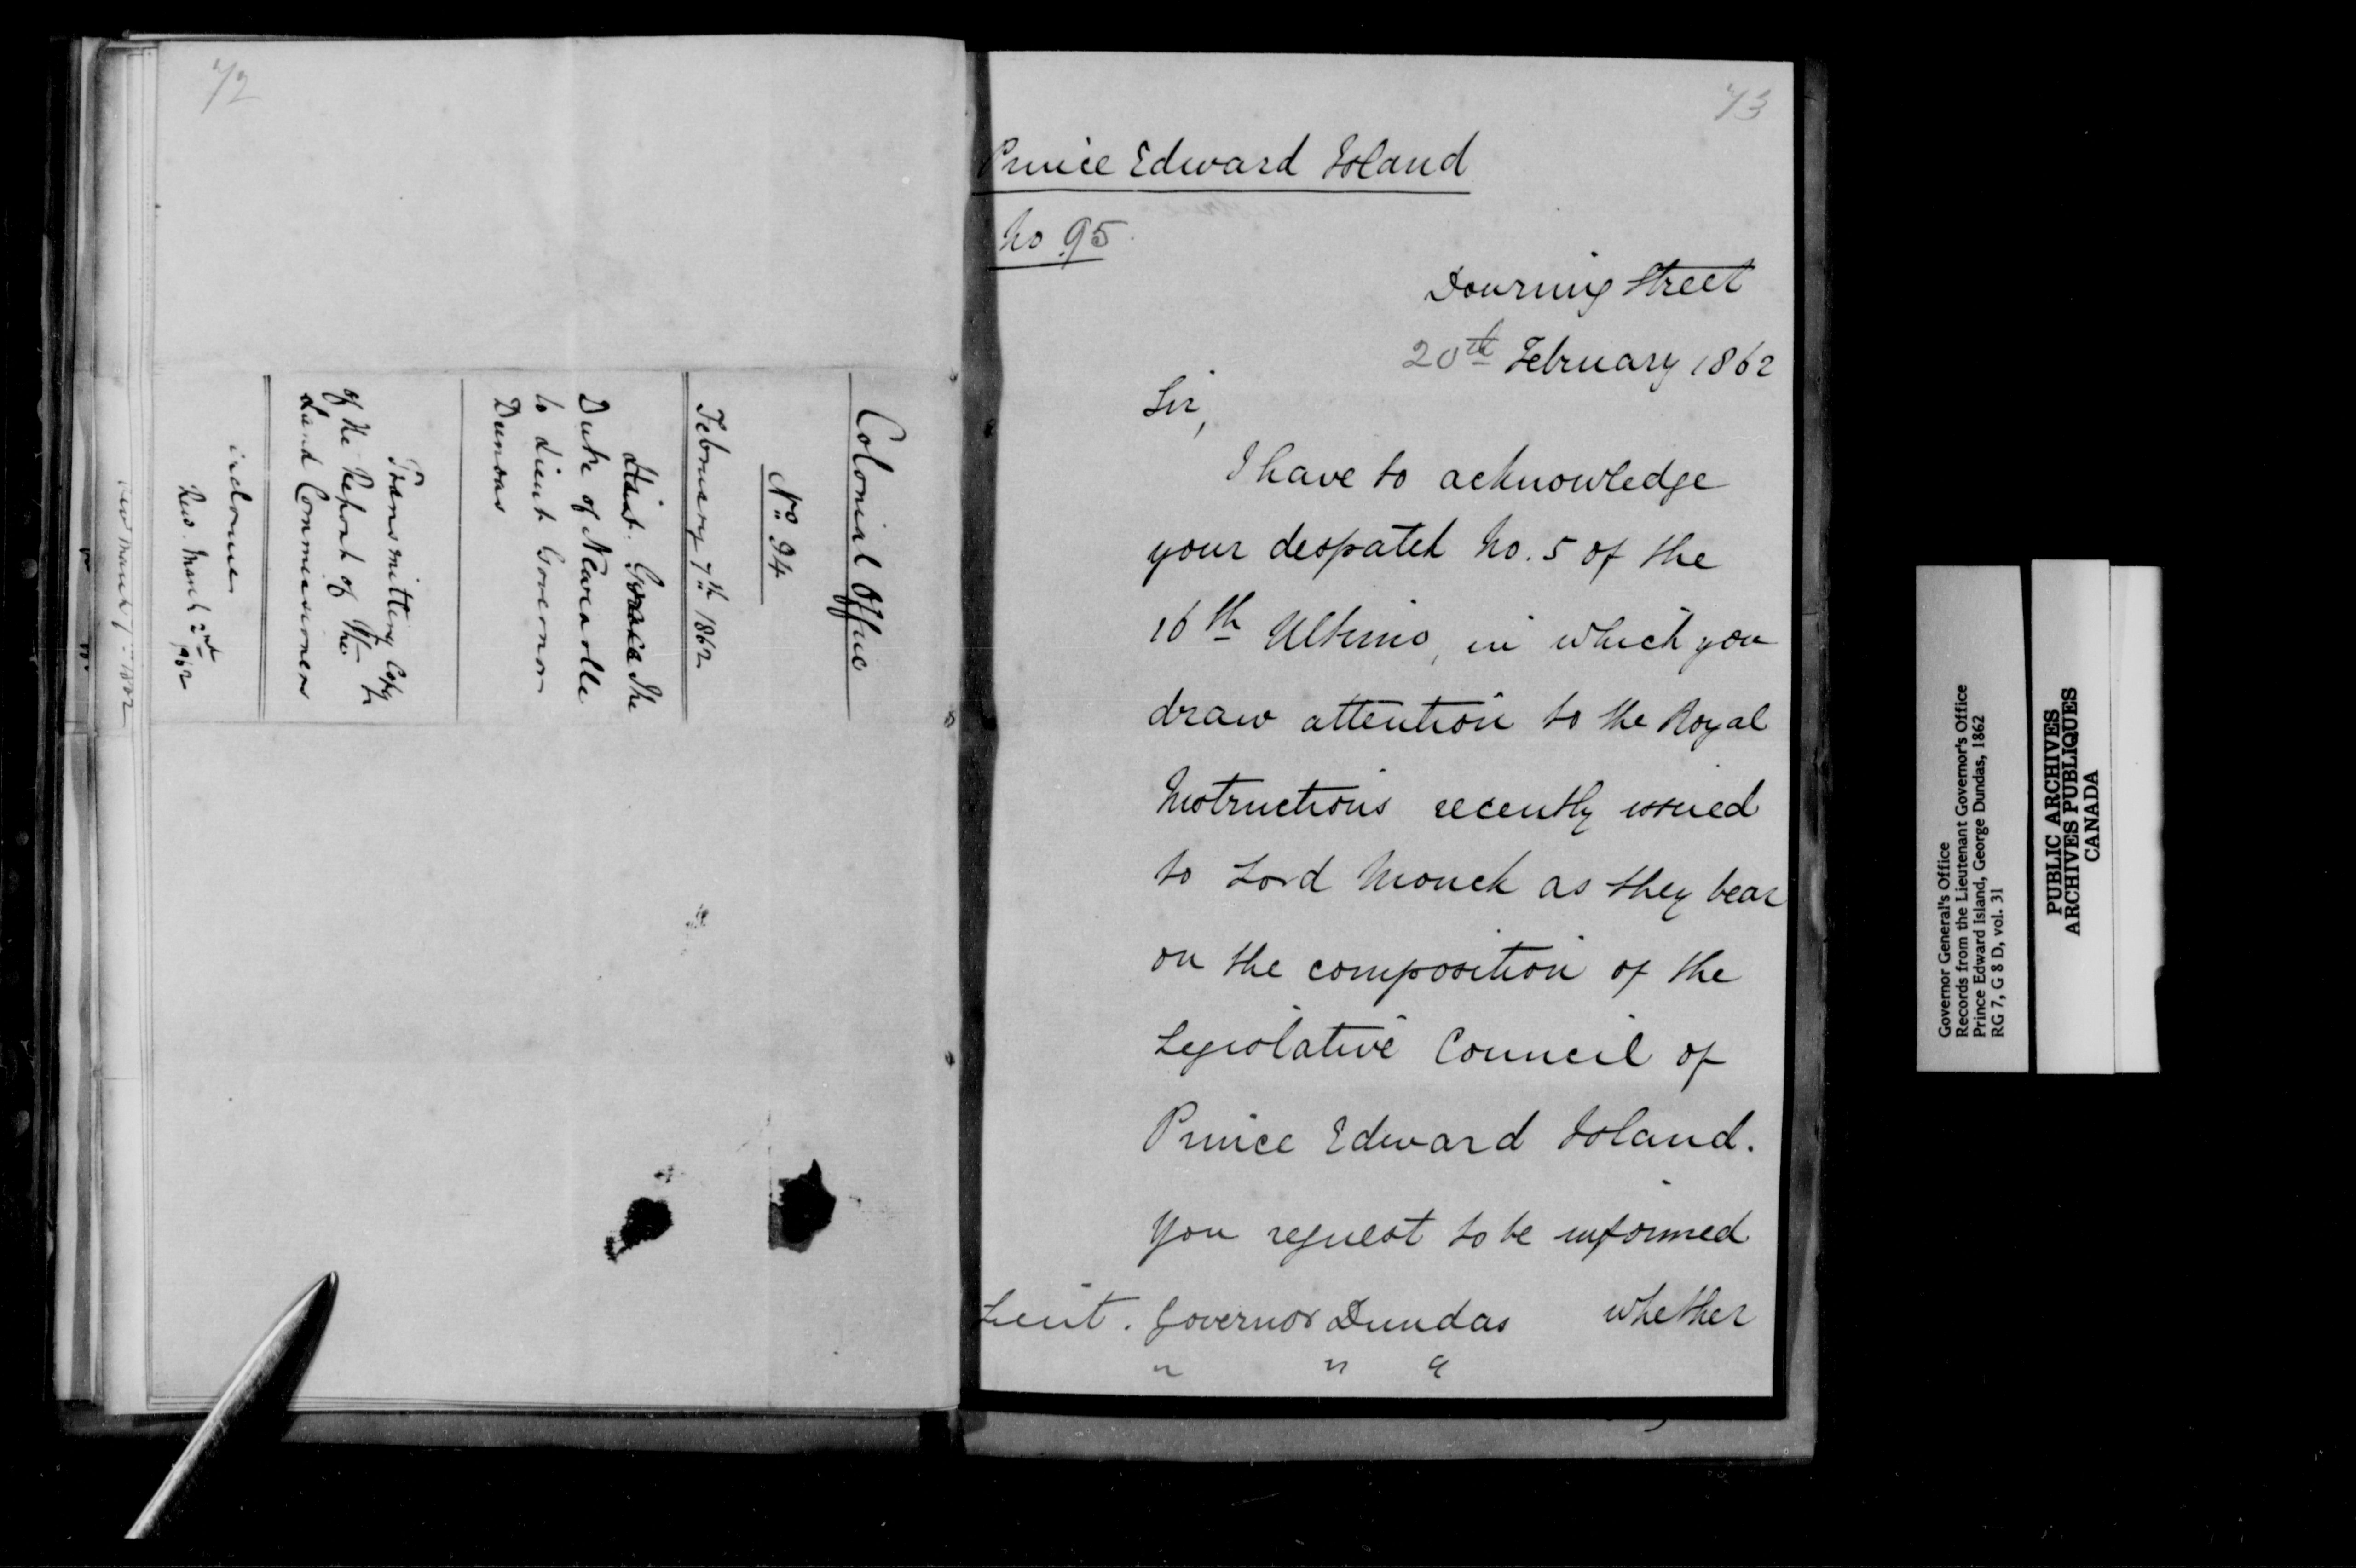 72
Colonial Office
No 94
February 7th 1862
The
Duke of Newcastle
to Lieut Governor
Dundas
Transmitting Copy
of the Report of The
Land Commissioners
Rec. March 2nd
1862
73
Prince Edward Island
No 95
Downing Street
20th February 1862
Sir,
I have to acknowledge
your despatch No. 5 of the
16th Ultimo, in which you
draw attention to the Royal
Instructions recently issued
to Lord Monck as they bear
on the composition of the
Legislative Council of
Prince Edward Island.
You request to be informed
Lieut. Governor Dundas whether
Governor General's Office
Records from the Lieutenant Governor's Office
Prince Edward Island, George Dundas, 1862
RG 7, G 8 D, vol. 31
PUBLIC ARCHIVES
ARCHIVES PUBLIQUES
CANADA